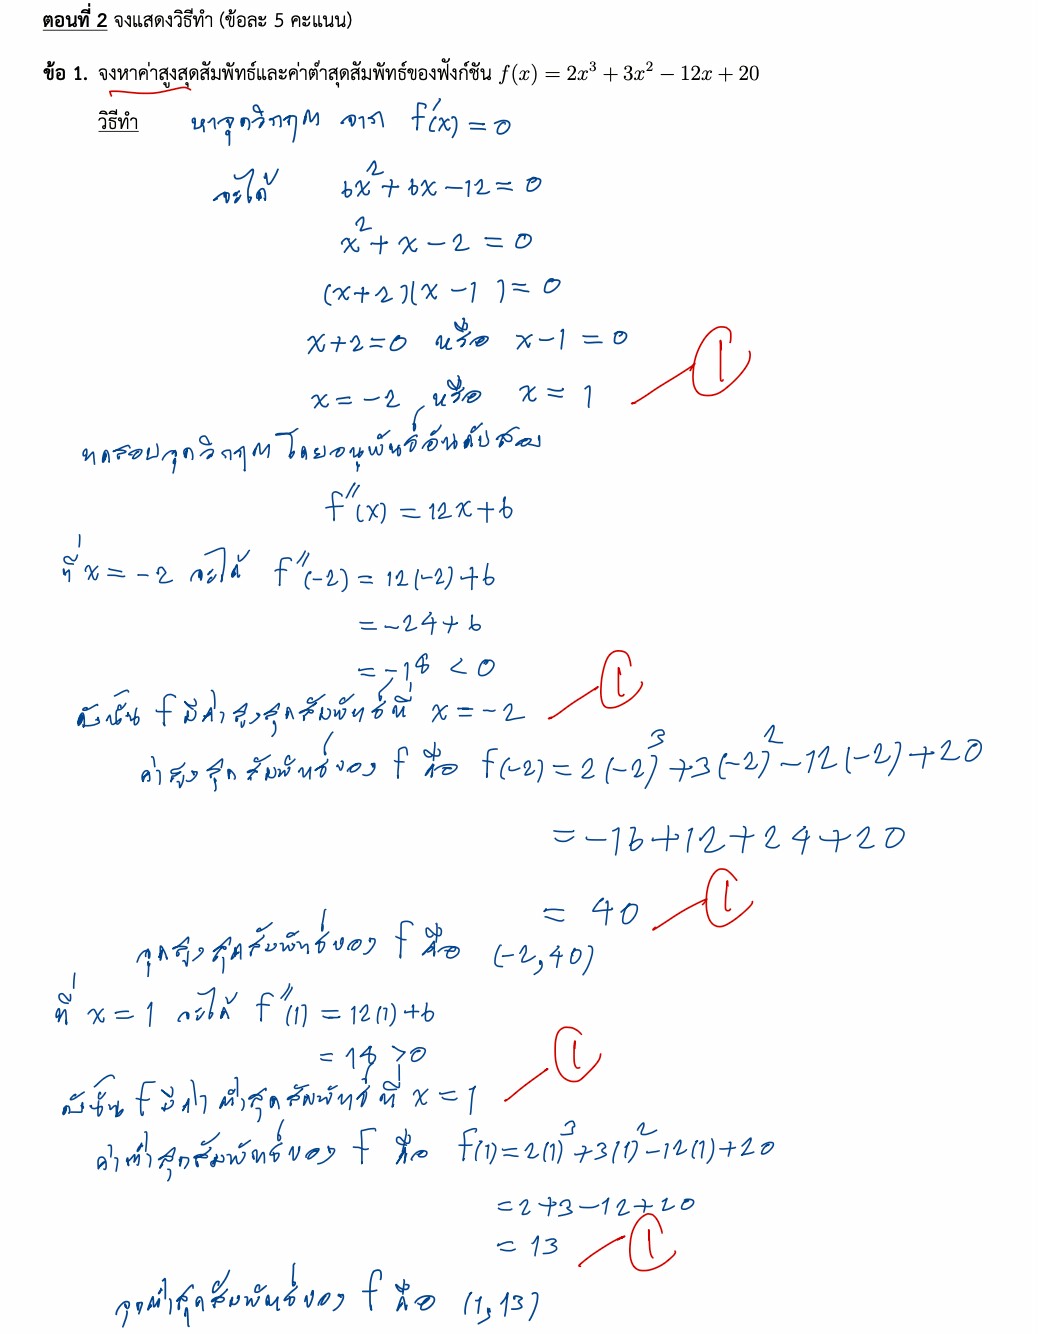 ตอนที่ 2 จงแสดงวิธีทำ (ข้อละ 5 คะแนน)
ข้อ 1. จงหาค่าสูงสุดสัมพัทธ์และค่าต่ำสุดสัมพัทธ์ของฟังก์ชัน f(x) = 2x³ + 3x² − 12x + 20
วิธีทำ หาจุดวิกฤต จาก f′(x) = 0
จะได้ 6x² + 6x − 12 = 0
x² + x − 2 = 0
(x+2)(x−1) = 0
x+2 = 0 หรือ x−1 = 0
x = −2 หรือ x = 1 ①
ทดสอบจุดวิกฤตโดยอนุพันธ์อันดับสอง
f″(x) = 12x+6
ที่ x = −2 จะได้ f″(−2) = 12(−2)+6
= −24+6
= −18 < 0
ดังนั้น f มีค่าสูงสุดสัมพัทธ์ที่ x = −2 ①
ค่าสูงสุดสัมพัทธ์ของ f คือ f(−2) = 2(−2)³ + 3(−2)² − 12(−2) + 20
= −16 + 12 + 24 + 20
= 40 ①
จุดสูงสุดสัมพัทธ์ของ f คือ (−2, 40)
ที่ x = 1 จะได้ f″(1) = 12(1)+6
= 18 > 0
ดังนั้น f มีค่าต่ำสุดสัมพัทธ์ที่ x = 1 ①
ค่าต่ำสุดสัมพัทธ์ของ f คือ f(1) = 2(1)³ + 3(1)² − 12(1) + 20
= 2+3−12+20
= 13 ①
จุดต่ำสุดสัมพัทธ์ของ f คือ (1, 13)